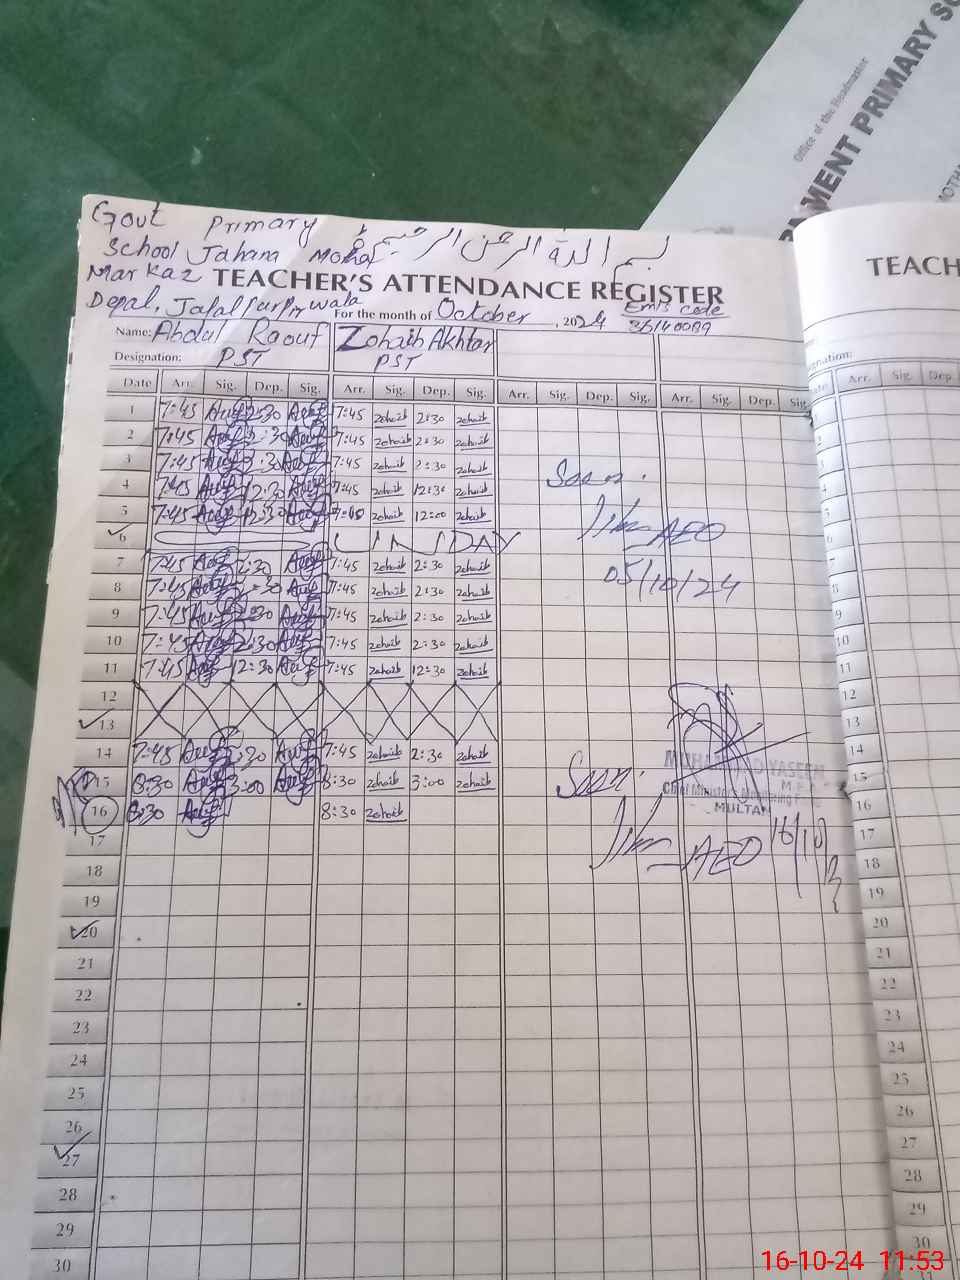 Office of the Headmaster
MENT PRIMARY SC
Govt Primary
بسم اللہ الرحمن الرحیم
School Jahana
Markaz TEACHER'S ATTENDANCE REGISTER
TEACH
Depal, Jalalpur Pirwala
For the month of October, 2024
Emis code
36140089
Name: Abdul Raouf Zohaib Akhtar
Designation: PST PST
gnation:
Date Arr. Sig. Dep. Sig. Arr. Sig. Dep. Sig. Arr. Sig. Dep. Sig. Arr. Sig. Dep. Sig.
Arr. Sig. Dep
1 7:45 2:30 7:45 zohaib 2:30 zohaib
2 7:45 2:30 7:45 zohaib 2:30 zohaib
3 7:45 2:30 7:45 zohaib 2:30 zohaib
4 7:45 12:30 7:45 zohaib 12:30 zohaib
5 7:45 12:30 zohaib 12:00 zohaib
Seen.
AEO
05/10/24
6 UNDAY
7 7:45 2:30 7:45 zohaib 2:30 zohaib
8 7:45 2:30 7:45 zohaib 2:30 zohaib
9 7:45 2:30 7:45 zohaib 2:30 zohaib
10 7:45 2:30 7:45 zohaib 2:30 zohaib
11 7:45 12:30 7:45 zohaib 12:30 zohaib
12
13
14 7:45 2:30 7:45 zohaib 2:30 zohaib
15 8:30 3:00 8:30 zohaib 3:00 zohaib
16 8:30 8:30 zohaib
Seen.
MUHAMMAD YASEEM
Chief Minister's Monitoring Force
MULTAN
AEO 16/10
17
18
19
20
21
22
23
24
25
26
27
28
29
30
2
3
4
5
6
7
8
9
10
11
12
13
14
15
16
17
18
19
20
21
22
23
24
25
26
27
28
29
30
16-10-24 11:53